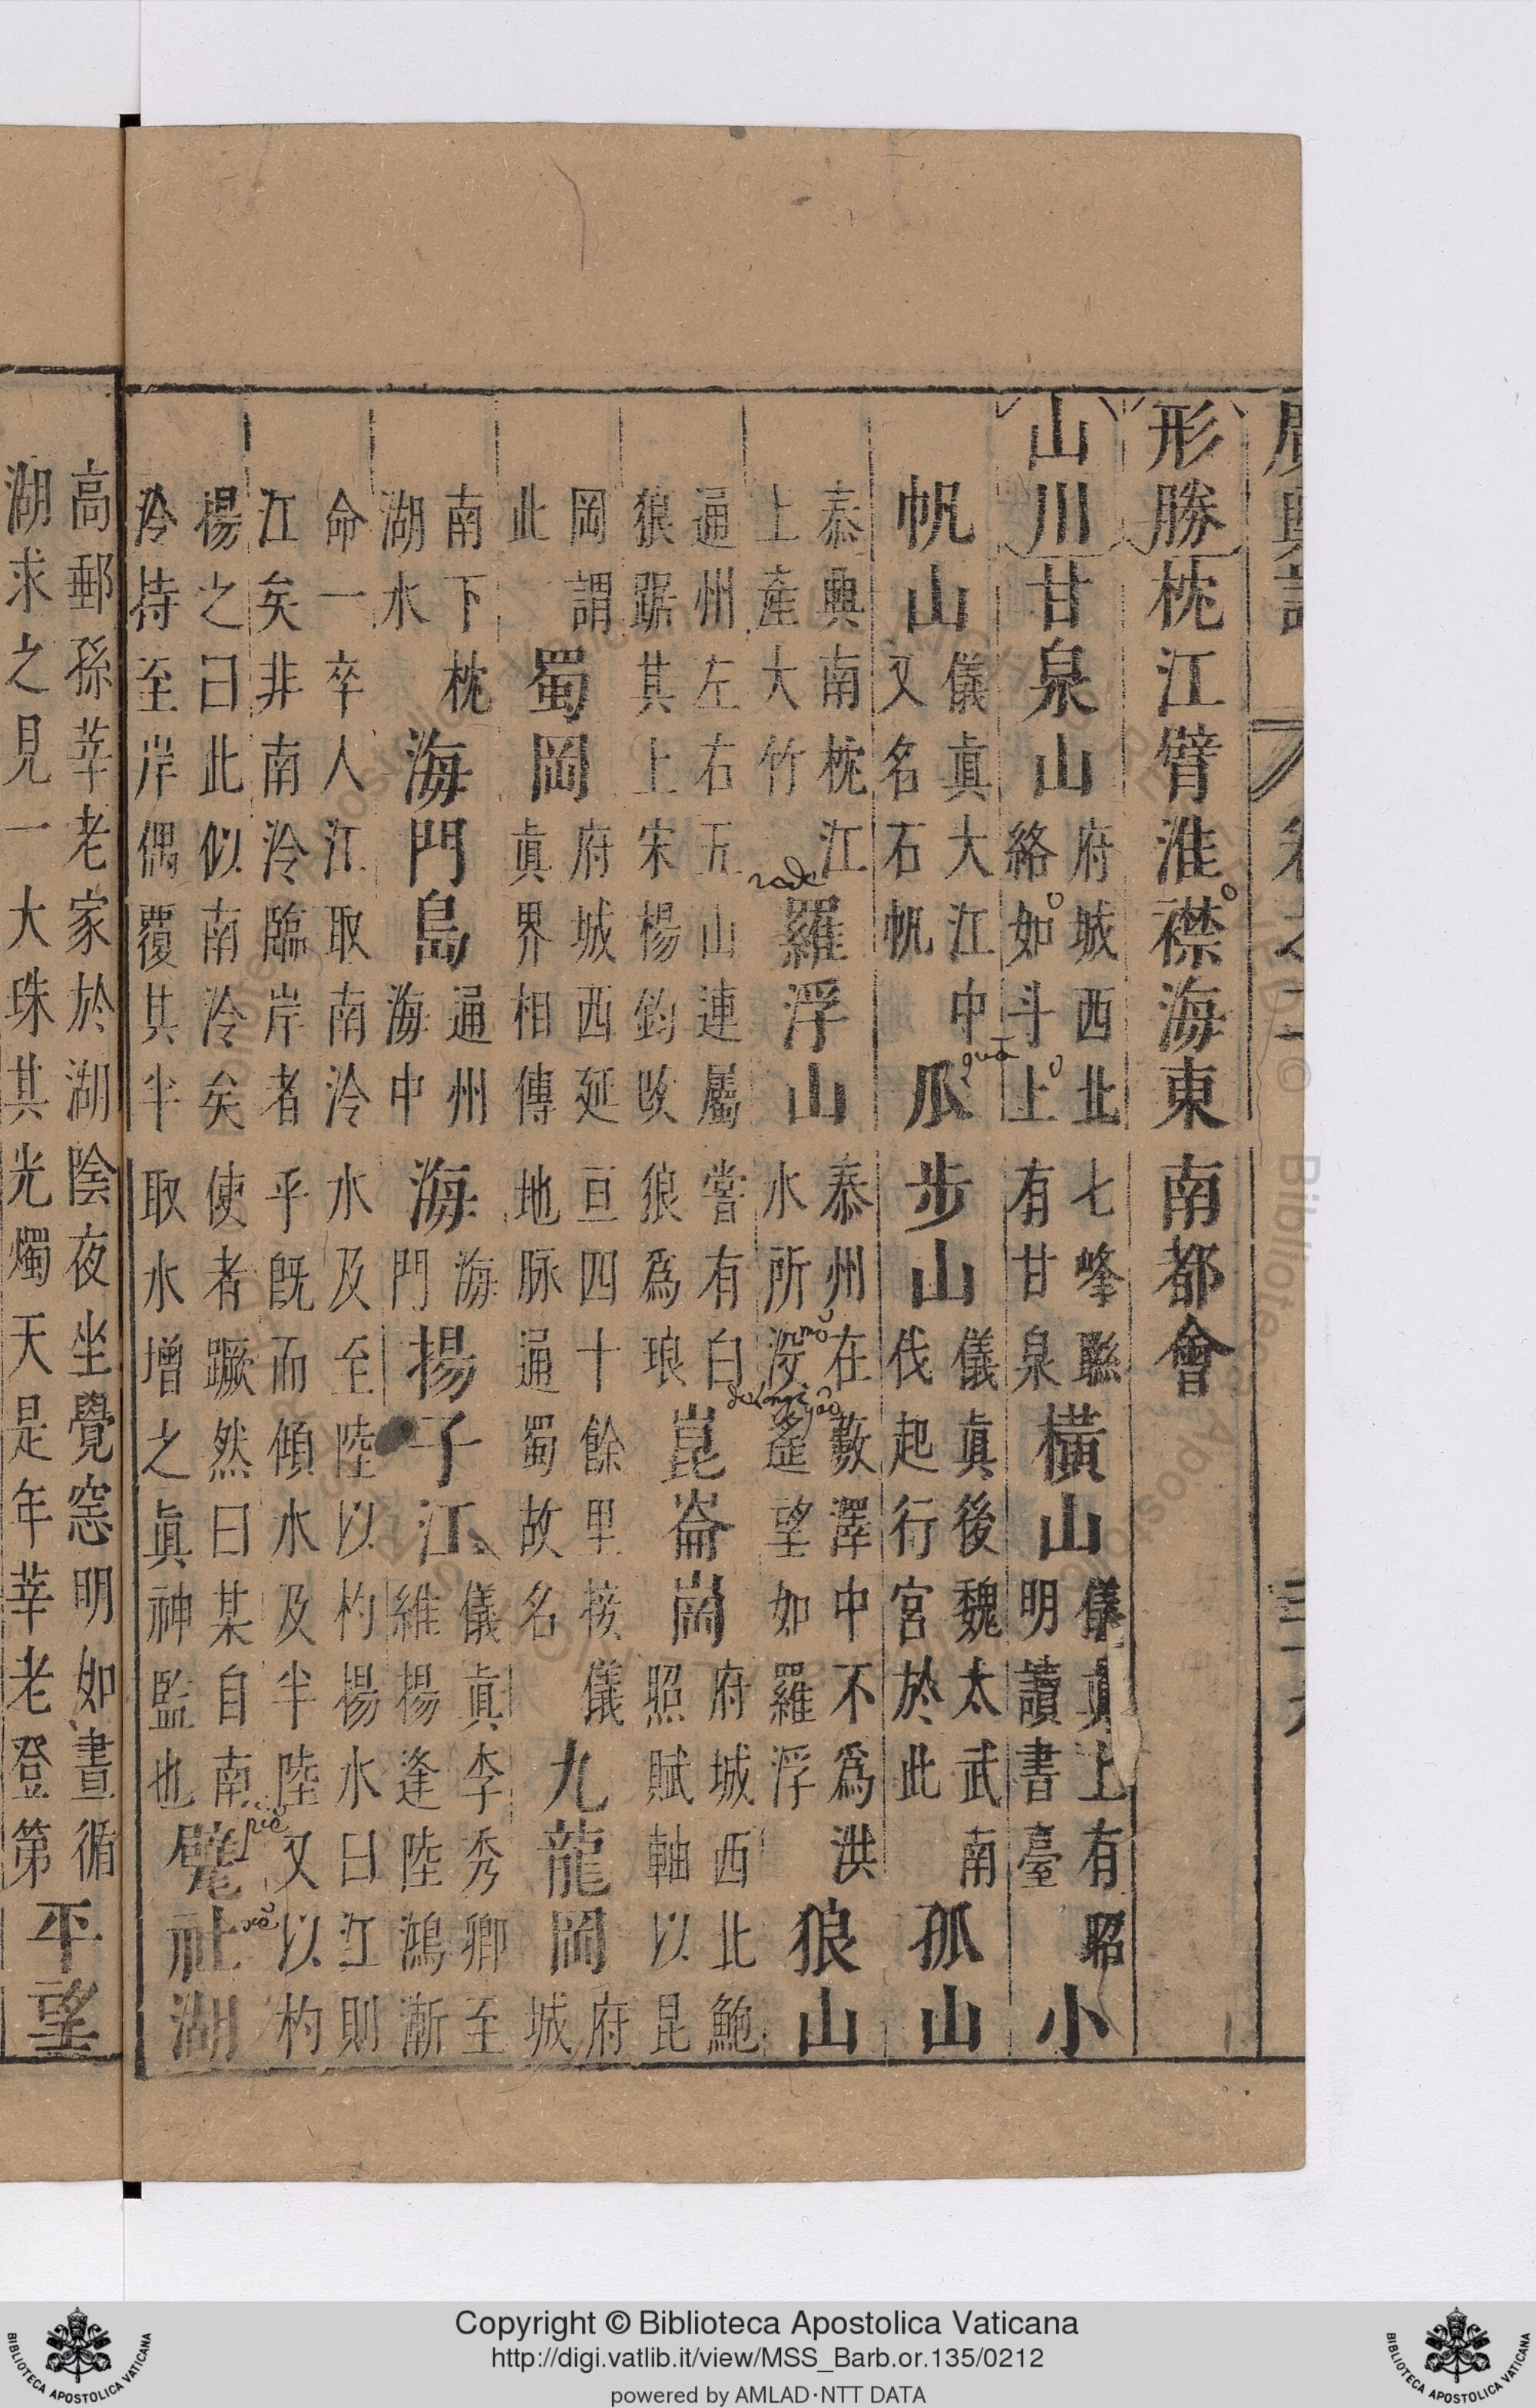 形勝枕江臂淮襟海東南都會
山川甘泉山府城西北七峰聯
絡如斗上有甘泉橫山儀真上有昭
明讀書臺小
帆山儀眞大江中
又名石帆瓜步山儀眞後魏太武南
伐起行宮於此孤山
泰興南枕江
上產大竹羅浮山泰州在藪澤中不爲洪
水所没遙望如羅浮狼山
通州左右五山連屬嘗有白
狼踞其上宋楊鈞改狼爲琅崑崙崗府城西北鮑
照賦軸以昆
岡謂
此蜀岡府城西延亘四十餘里接儀
眞界相傳地脉通蜀故名九龍岡府
城
南下枕
湖水海門島通州
海中海海
門揚子江儀眞李秀卿至
維楊逢陸鴻漸
命一卒人江取南泠水及至陸以杓楊水曰江則
江矣非南泠臨岸者乎旣而傾水及半陸又以杓
楊之曰此似南泠矣使者蹶然曰某自南
泠持至岸偶覆其半取水增之眞神監也甓社湖
高郵孫莘老家於湖陰夜坐覺窓明如晝循
湖求之見一大珠其光燭天是年莘老登第平望
quā
mǒ
yaô
pié
xé
Copyright © Biblioteca Apostolica Vaticana
http://digi.vatlib.it/view/MSS_Barb.or.135/0212
powered by AMLAD·NTT DATA